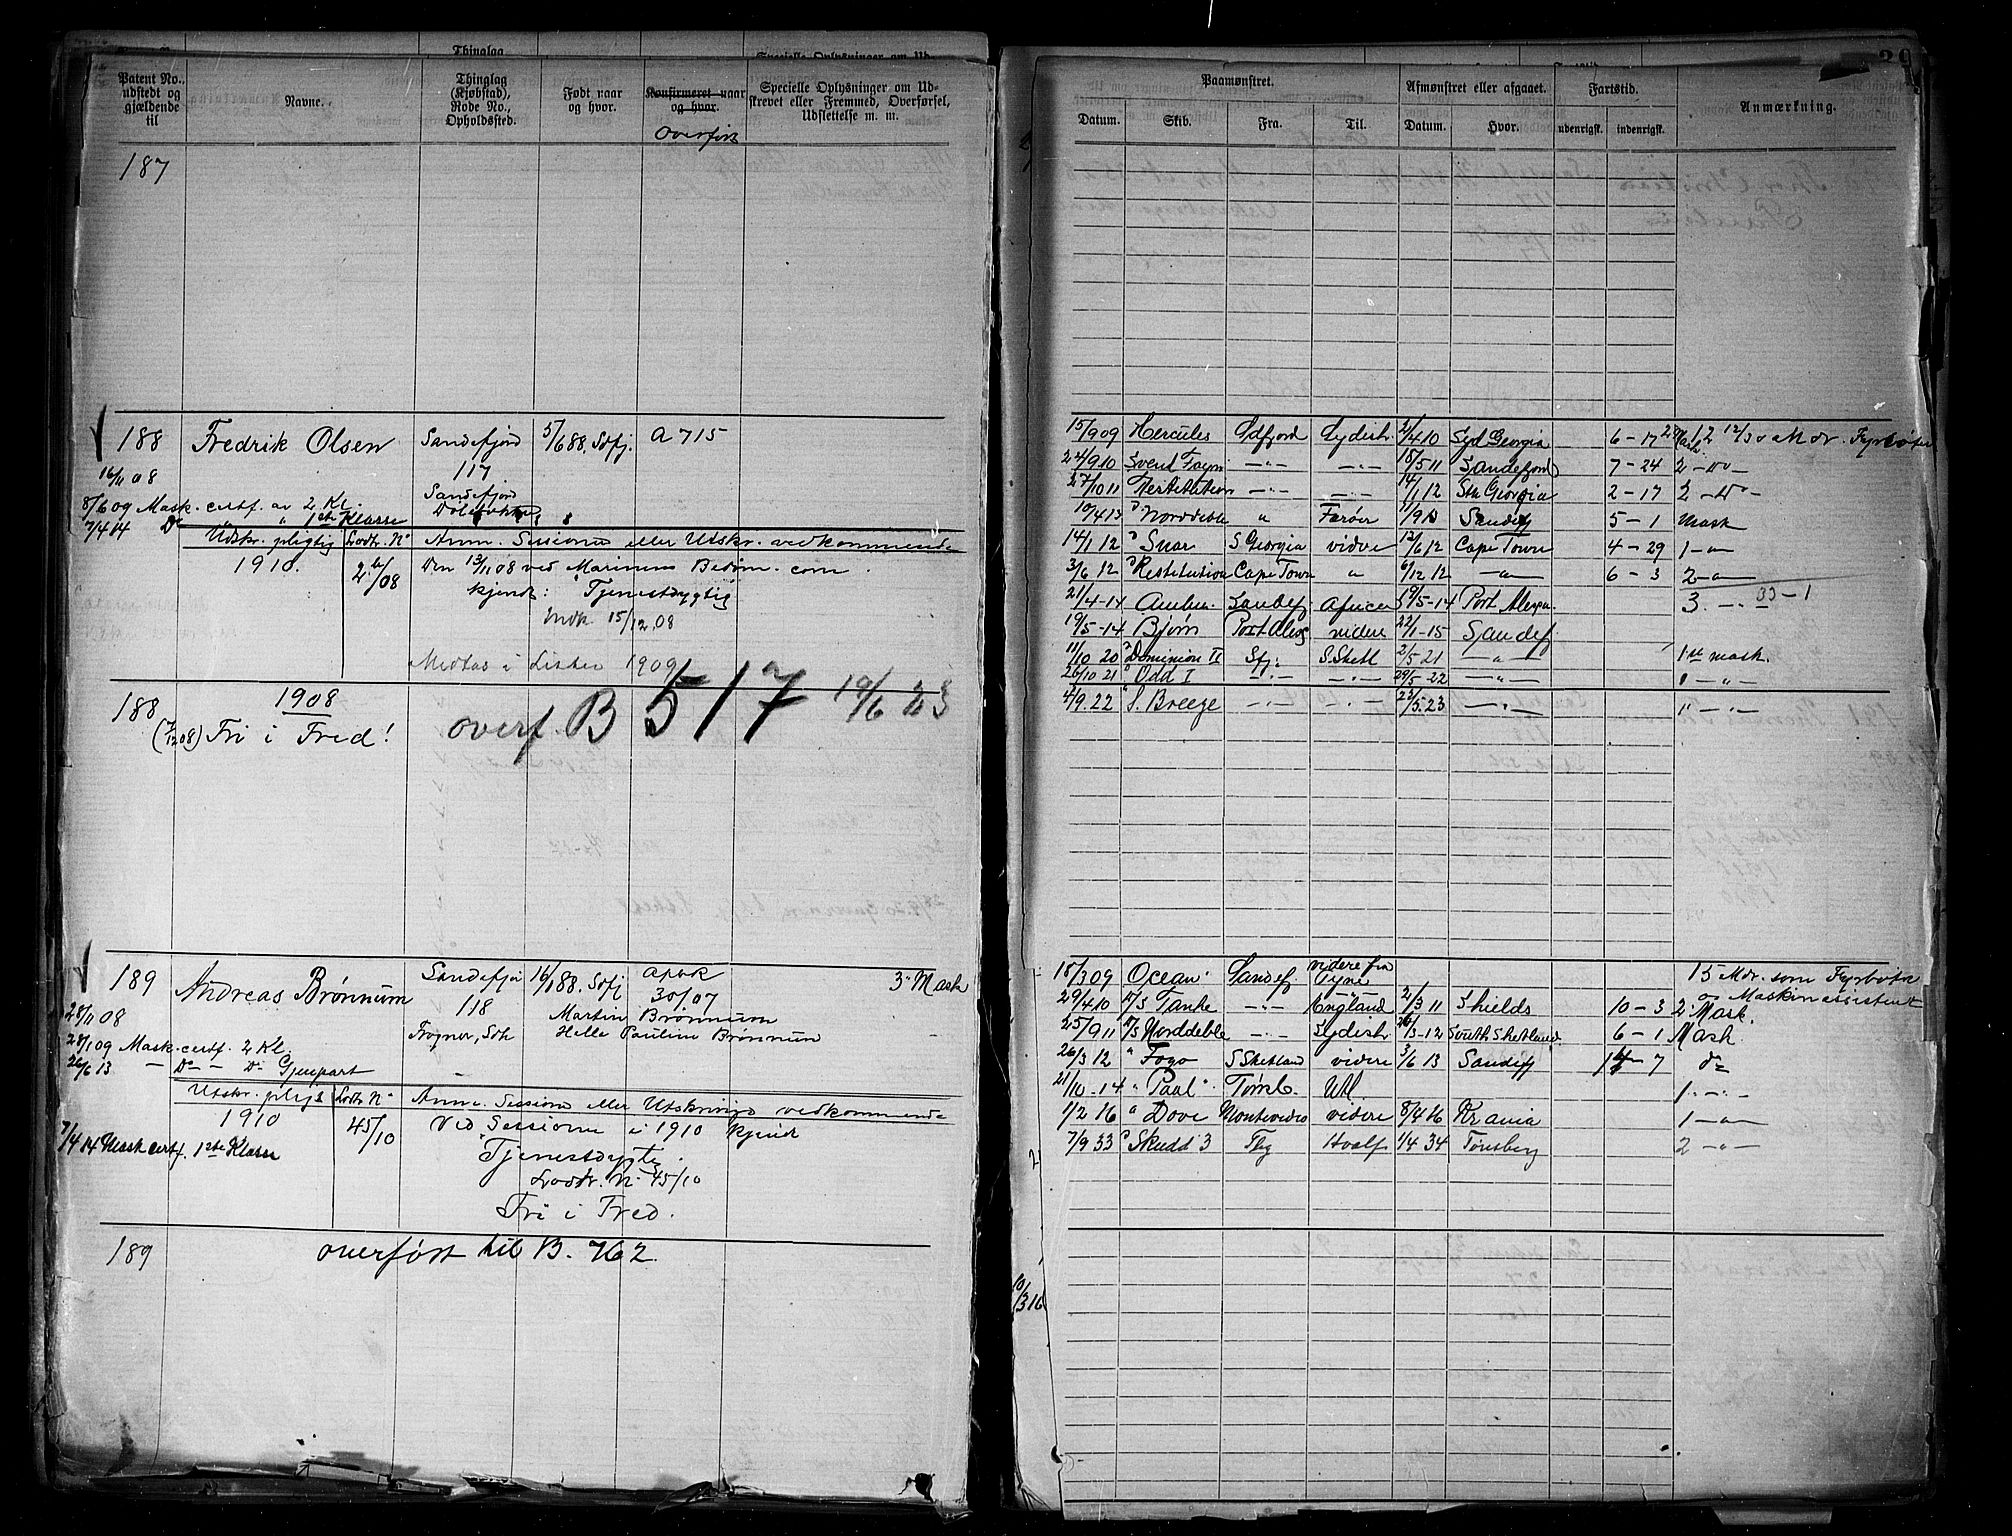 Patent No., udstedt og gjældende til
Navne.
Thinglag (Kjøbstad), Rode No., Opholdssted.
Født naar og hvor.
Konfirmeret naar og hvor.
overført
Specielle Oplysninger om Udstrevet eller Fremmed, Overførsel, Udslettelse m. m.
187
188 Fredrik Olsen Sandefjord 5/6 88. Sdfj. A 715
117
16/11 08 Sandefjord
8/6 09 Mask. certf. av 2 Kl.
7/4 14 Do " " 1ste Klasse
Udskr. pligtig Lodtr. No Anm. Sessions eller Udskr. vedkommende
1910. Den 13/11 08 ved Marinens Bedøm. com.
kjendt: Tjenestdygtig
Indk 15/12 08
Medtas i Lister 1909
188 1908
Fri i Fred! overf. B 517 19/6 23
189 Andreas Brønnum Sandefj 16/1 88. Sdfj 3" Mask
118 30/07
28/11 08 Martin Brønnum
Helle Pauline Brønnum
28/1 09 Mask. certf. 2 Kl
26/6 13 — Do — Do Gjenpart
Udskr. pligt Lodtr No Anm. Sessions eller Udskrivgs vedkommende
1910 45/10 Ved Sessionen i 1910 kjendt
7/4 14 Mask certf. 1ste Klasse
Tjenestdygtig.
Lodtr. No 45/10
Fri i Fred.
189 overført til B. 762
Paamønstret.
Afmønstret eller afgaaet.
Fartstid.
Anmærkning.
Datum. Skib. Fra. Til. Datum. Hvor. udenrigsk. indenrigsk.
15/9 09 Hercules Sdfjord Sydish 2/4 10 Syd Georgia 6 - 17
24/9 10 Svend Foyn —"— —"— 18/5 11 Sandefjord 7 - 24 2 —Do—
27/10 11 Restitution —"— —"— 14/1 12 Sth Georgia 2 - 17 2 —Do—
10/4 13 " Norddeble " Farøer Sandefj 5 - 1 Mask
14/1 12 " Snar S Georgia vidre 12/6 12 Cape Town 4 - 29 1 —"—
3/6 12 " Restitution Cape Town " 6/12 12 —"— 6 - 3 2 —"—
21/4 - 14 Sandef Africa 19/5 - 14 3 —"— 33 - 1
19/5 - 14 Bjørn videre 22/1 - 15 Sandef
11/10 20 " Dominion II Sfj: S. Shetl 2/5 21 —"— 1ste mask.
26/10 21 " Odd I —"— —"— 29/5 - 22 —"— 1 —"—
4/9. 22 " S. Breeze —"— —"— 22/5. 23 —"— 1" —"—
18/3 09 Ocean Sandef videre fra Tyne 15 Mdr. som Fyrbøter
og Maskinassistent
29/4 10 D/S Tanke —"— England 2/3 11 Shields 10 - 3 2 Mask.
25/9 11 D/S Norddeble —"— Sydish South Shetland 6 - 1 Mask.
26/3 12 " Fogo S Shetland videre 3/6 13 Sandefj 14 - 7 do
21/10 . 14 " Paal " Tønsb. Utl. 1 —"—
1/2 16 " Dove Montevideo videre 8/4 16 Krania 1 —"—
7/9 33 " Skudd 3 Tbg Hvalf. 1/4 34 Tønsberg 2 —"—
10/3 16